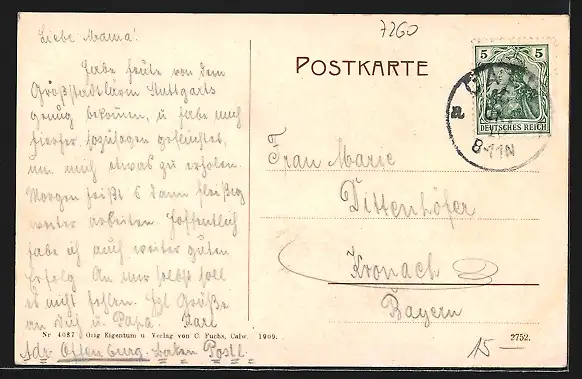 7260
Liebe Mama!
Habe heute von dem
Großstadtlärm Stuttgarts
genug bekommen, u habe mich
hierher, sozusagen geflüchtet,
um mich etwas zu erholen.
Morgen heißt s dann fleißig
weiter arbeiten. Hoffentlich
habe ich auch weiter guten
Erfolg An mir selbst soll
es nicht fehlen. Hzl Grüße
an dich u. Papa. Karl
POSTKARTE
5 5
DEUTSCHES REICH
CALW
8-11N
Frau Marie
Dittenhöfer
Kronach
Bayern
Nr 4087 Orig Eigentum u Verlag von C. Fuchs, Calw. 1909.
2752.
15—
Adr. Offenburg Baden Postl.